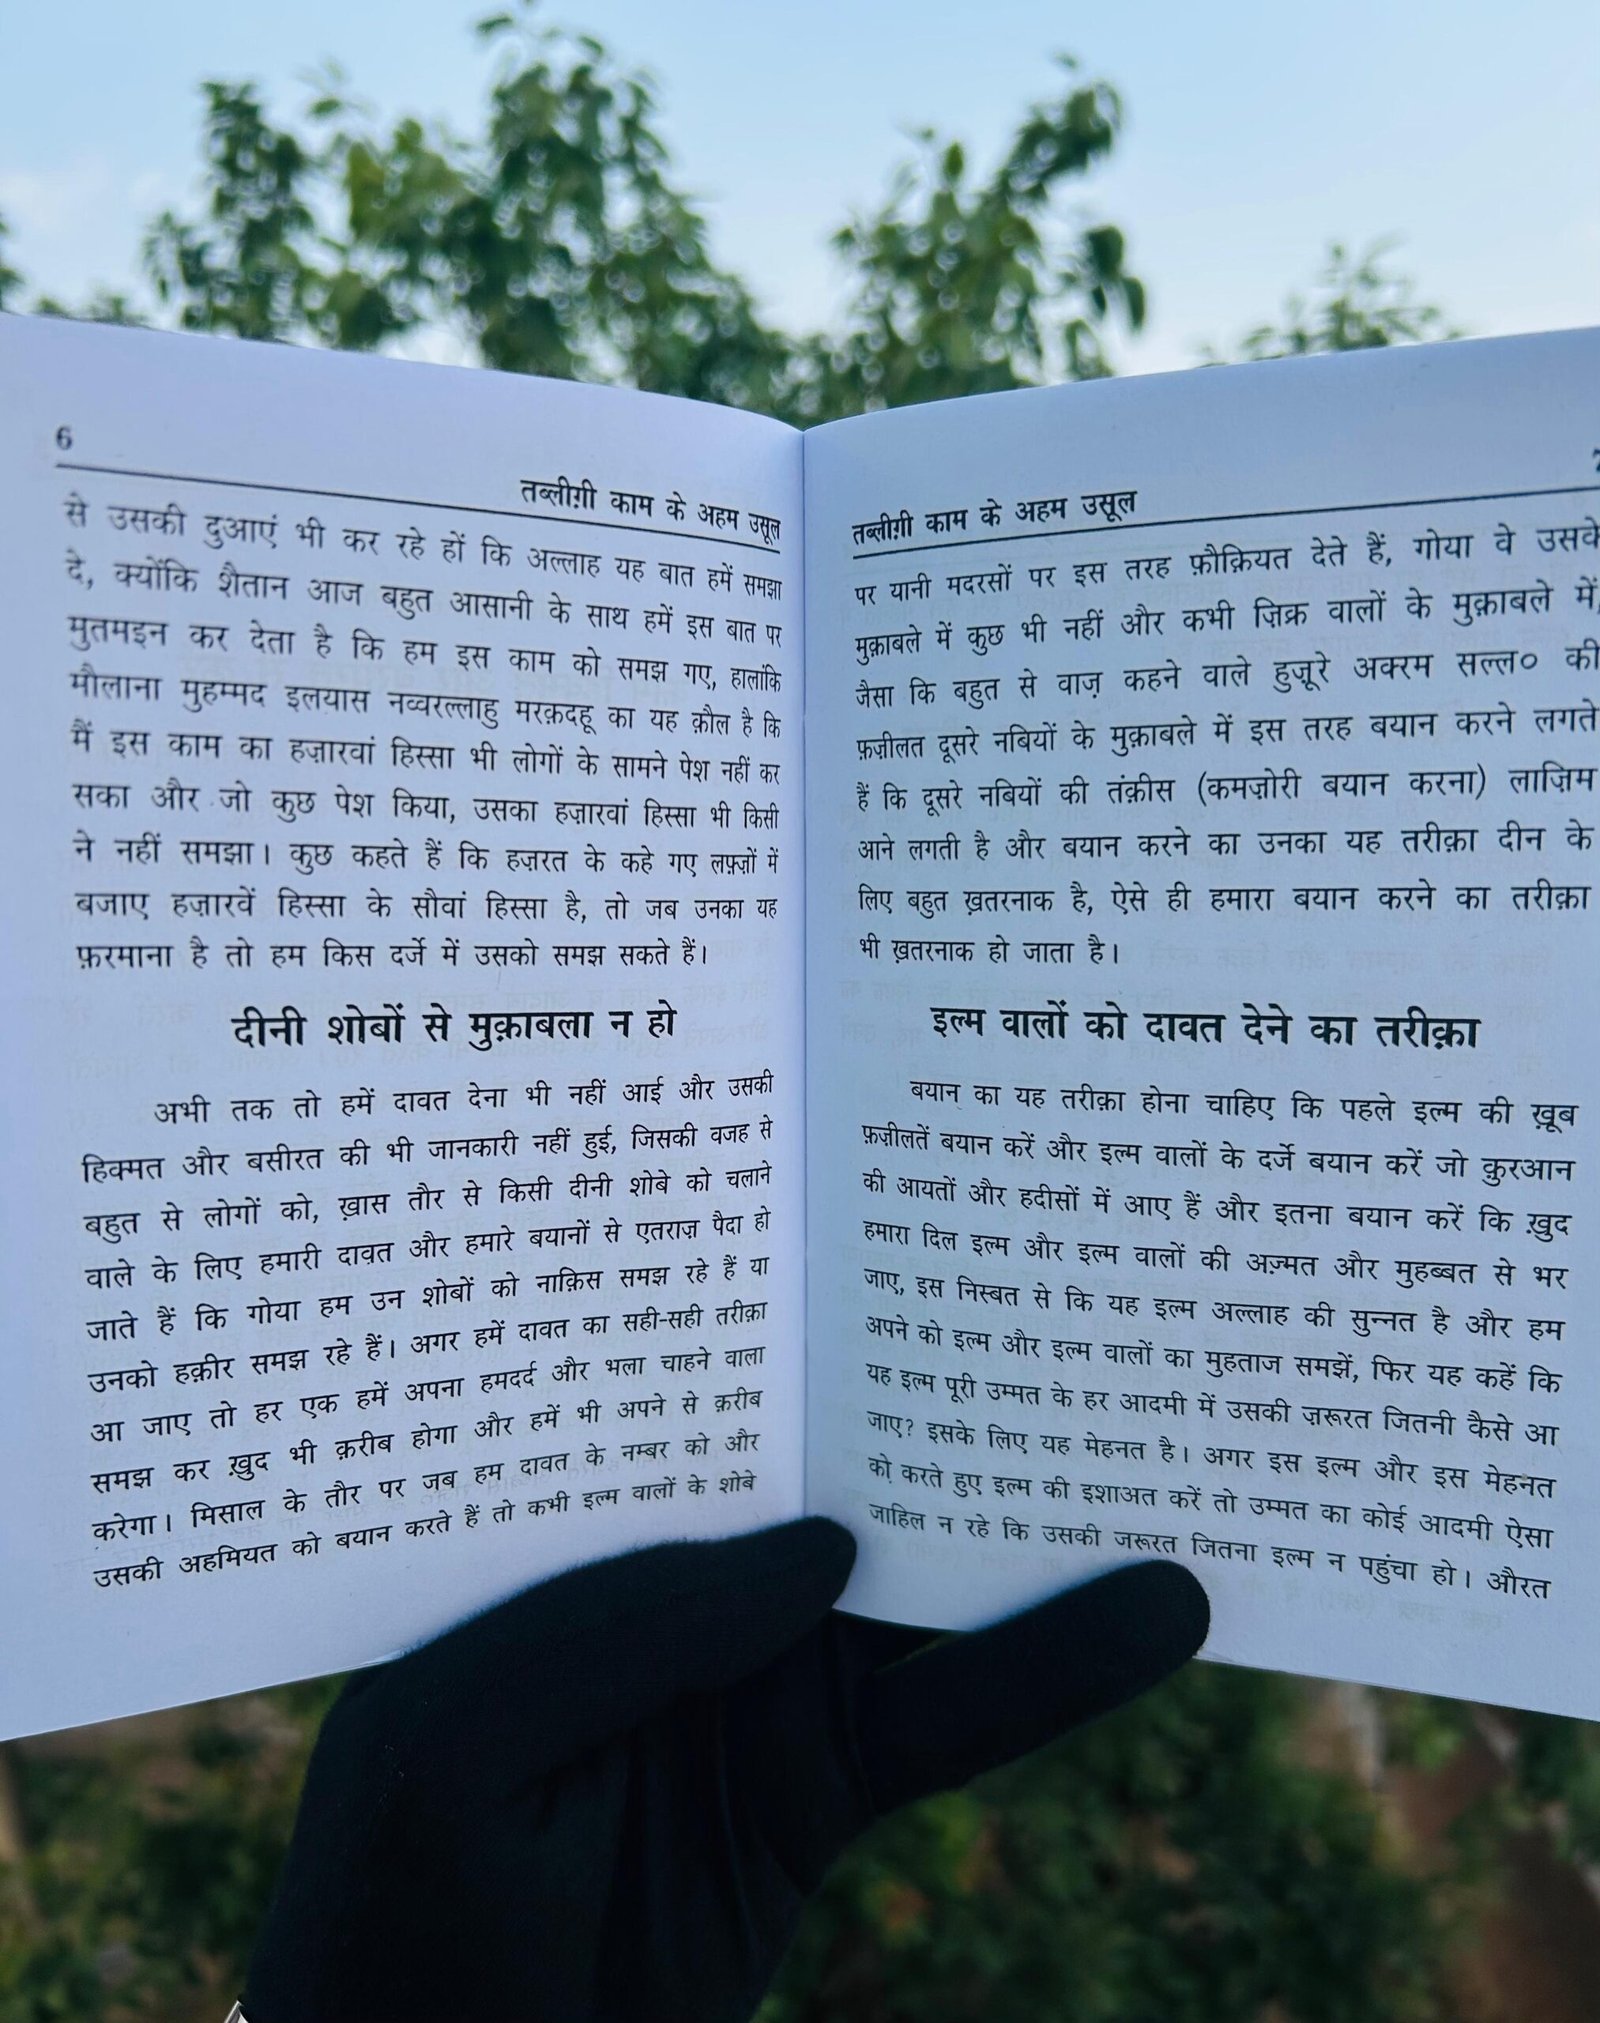 6
तब्लीग़ी काम के अहम उसूल
से उसकी दुआएं भी कर रहे हों कि अल्लाह यह बात हमें समझा
दे, क्योंकि शैतान आज बहुत आसानी के साथ हमें इस बात पर
मुतमइन कर देता है कि हम इस काम को समझ गए, हालांकि
मौलाना मुहम्मद इलयास नव्वरल्लाहु मरक़दहू का यह क़ौल है कि
मैं इस काम का हज़ारवां हिस्सा भी लोगों के सामने पेश नहीं कर
सका और जो कुछ पेश किया, उसका हज़ारवां हिस्सा भी किसी
ने नहीं समझा। कुछ कहते हैं कि हज़रत के कहे गए लफ़्ज़ों में
बजाए हज़ारवें हिस्सा के सौवां हिस्सा है, तो जब उनका यह
फ़रमाना है तो हम किस दर्जे में उसको समझ सकते हैं।
दीनी शोबों से मुक़ाबला न हो
अभी तक तो हमें दावत देना भी नहीं आई और उसकी
हिक्मत और बसीरत की भी जानकारी नहीं हुई, जिसकी वजह से
बहुत से लोगों को, ख़ास तौर से किसी दीनी शोबे को चलाने
वाले के लिए हमारी दावत और हमारे बयानों से एतराज़ पैदा हो
जाते हैं कि गोया हम उन शोबों को नाक़िस समझ रहे हैं या
उनको हक़ीर समझ रहे हैं। अगर हमें दावत का सही-सही तरीक़ा
आ जाए तो हर एक हमें अपना हमदर्द और भला चाहने वाला
समझ कर ख़ुद भी क़रीब होगा और हमें भी अपने से क़रीब
करेगा। मिसाल के तौर पर जब हम दावत के नम्बर को और
उसकी अहमियत को बयान करते हैं तो कभी इल्म वालों के शोबे
तब्लीग़ी काम के अहम उसूल
पर यानी मदरसों पर इस तरह फ़ौक़ियत देते हैं, गोया वे उसके
मुक़ाबले में कुछ भी नहीं और कभी ज़िक्र वालों के मुक़ाबले में,
जैसा कि बहुत से वाज़ कहने वाले हुज़ूरे अक्रम सल्ल० की
फ़ज़ीलत दूसरे नबियों के मुक़ाबले में इस तरह बयान करने लगते
हैं कि दूसरे नबियों की तंक़ीस (कमज़ोरी बयान करना) लाज़िम
आने लगती है और बयान करने का उनका यह तरीक़ा दीन के
लिए बहुत ख़तरनाक है, ऐसे ही हमारा बयान करने का तरीक़ा
भी ख़तरनाक हो जाता है।
इल्म वालों को दावत देने का तरीक़ा
बयान का यह तरीक़ा होना चाहिए कि पहले इल्म की ख़ूब
फ़ज़ीलतें बयान करें और इल्म वालों के दर्जे बयान करें जो क़ुरआन
की आयतों और हदीसों में आए हैं और इतना बयान करें कि ख़ुद
हमारा दिल इल्म और इल्म वालों की अज़्मत और मुहब्बत से भर
जाए, इस निस्बत से कि यह इल्म अल्लाह की सुन्नत है और हम
अपने को इल्म और इल्म वालों का मुहताज समझें, फिर यह कहें कि
यह इल्म पूरी उम्मत के हर आदमी में उसकी ज़रूरत जितनी कैसे आ
जाए? इसके लिए यह मेहनत है। अगर इस इल्म और इस मेहनत
को करते हुए इल्म की इशाअत करें तो उम्मत का कोई आदमी ऐसा
जाहिल न रहे कि उसकी जरूरत जितना इल्म न पहुंचा हो। औरत